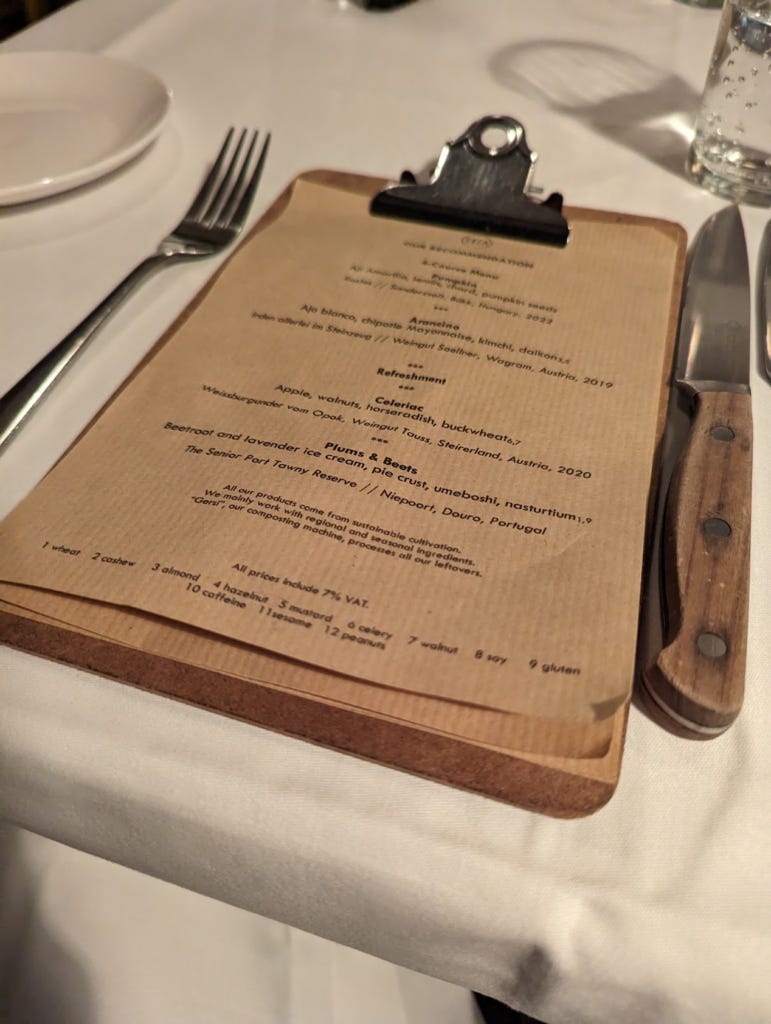 OUR RECOMMENDATION
4-Course Menu
Pumpkin
Aji Amarillo, lentils, chard, pumpkin seeds
Sanderzeen, Bükk, Hungary, 2022
***
Arancino
Ajo blanco, chipotle Mayonnaise, kimchi, daikon3,5
Irden allerlei im Steinzeug // Weingut Soellner, Wagram, Austria, 2019
***
Refreshment
***
Celeriac
Apple, walnuts, horseradish, buckwheat6,7
Weissburgunder vom Opok, Weingut Tauss, Steirerland, Austria, 2020
***
Plums & Beets
Beetroot and lavender ice cream, pie crust, umeboshi, nasturtium1,9
The Senior Port Tawny Reserve // Niepoort, Douro, Portugal
All our products come from sustainable cultivation.
We mainly work with regional and seasonal ingredients.
"Gersi", our composting machine, processes all our leftovers.
All prices include 7% VAT.
1 wheat 2 cashew 3 almond 4 hazelnut 5 mustard 6 celery 7 walnut 8 soy 9 gluten
10 caffeine 11sesame 12 peanuts